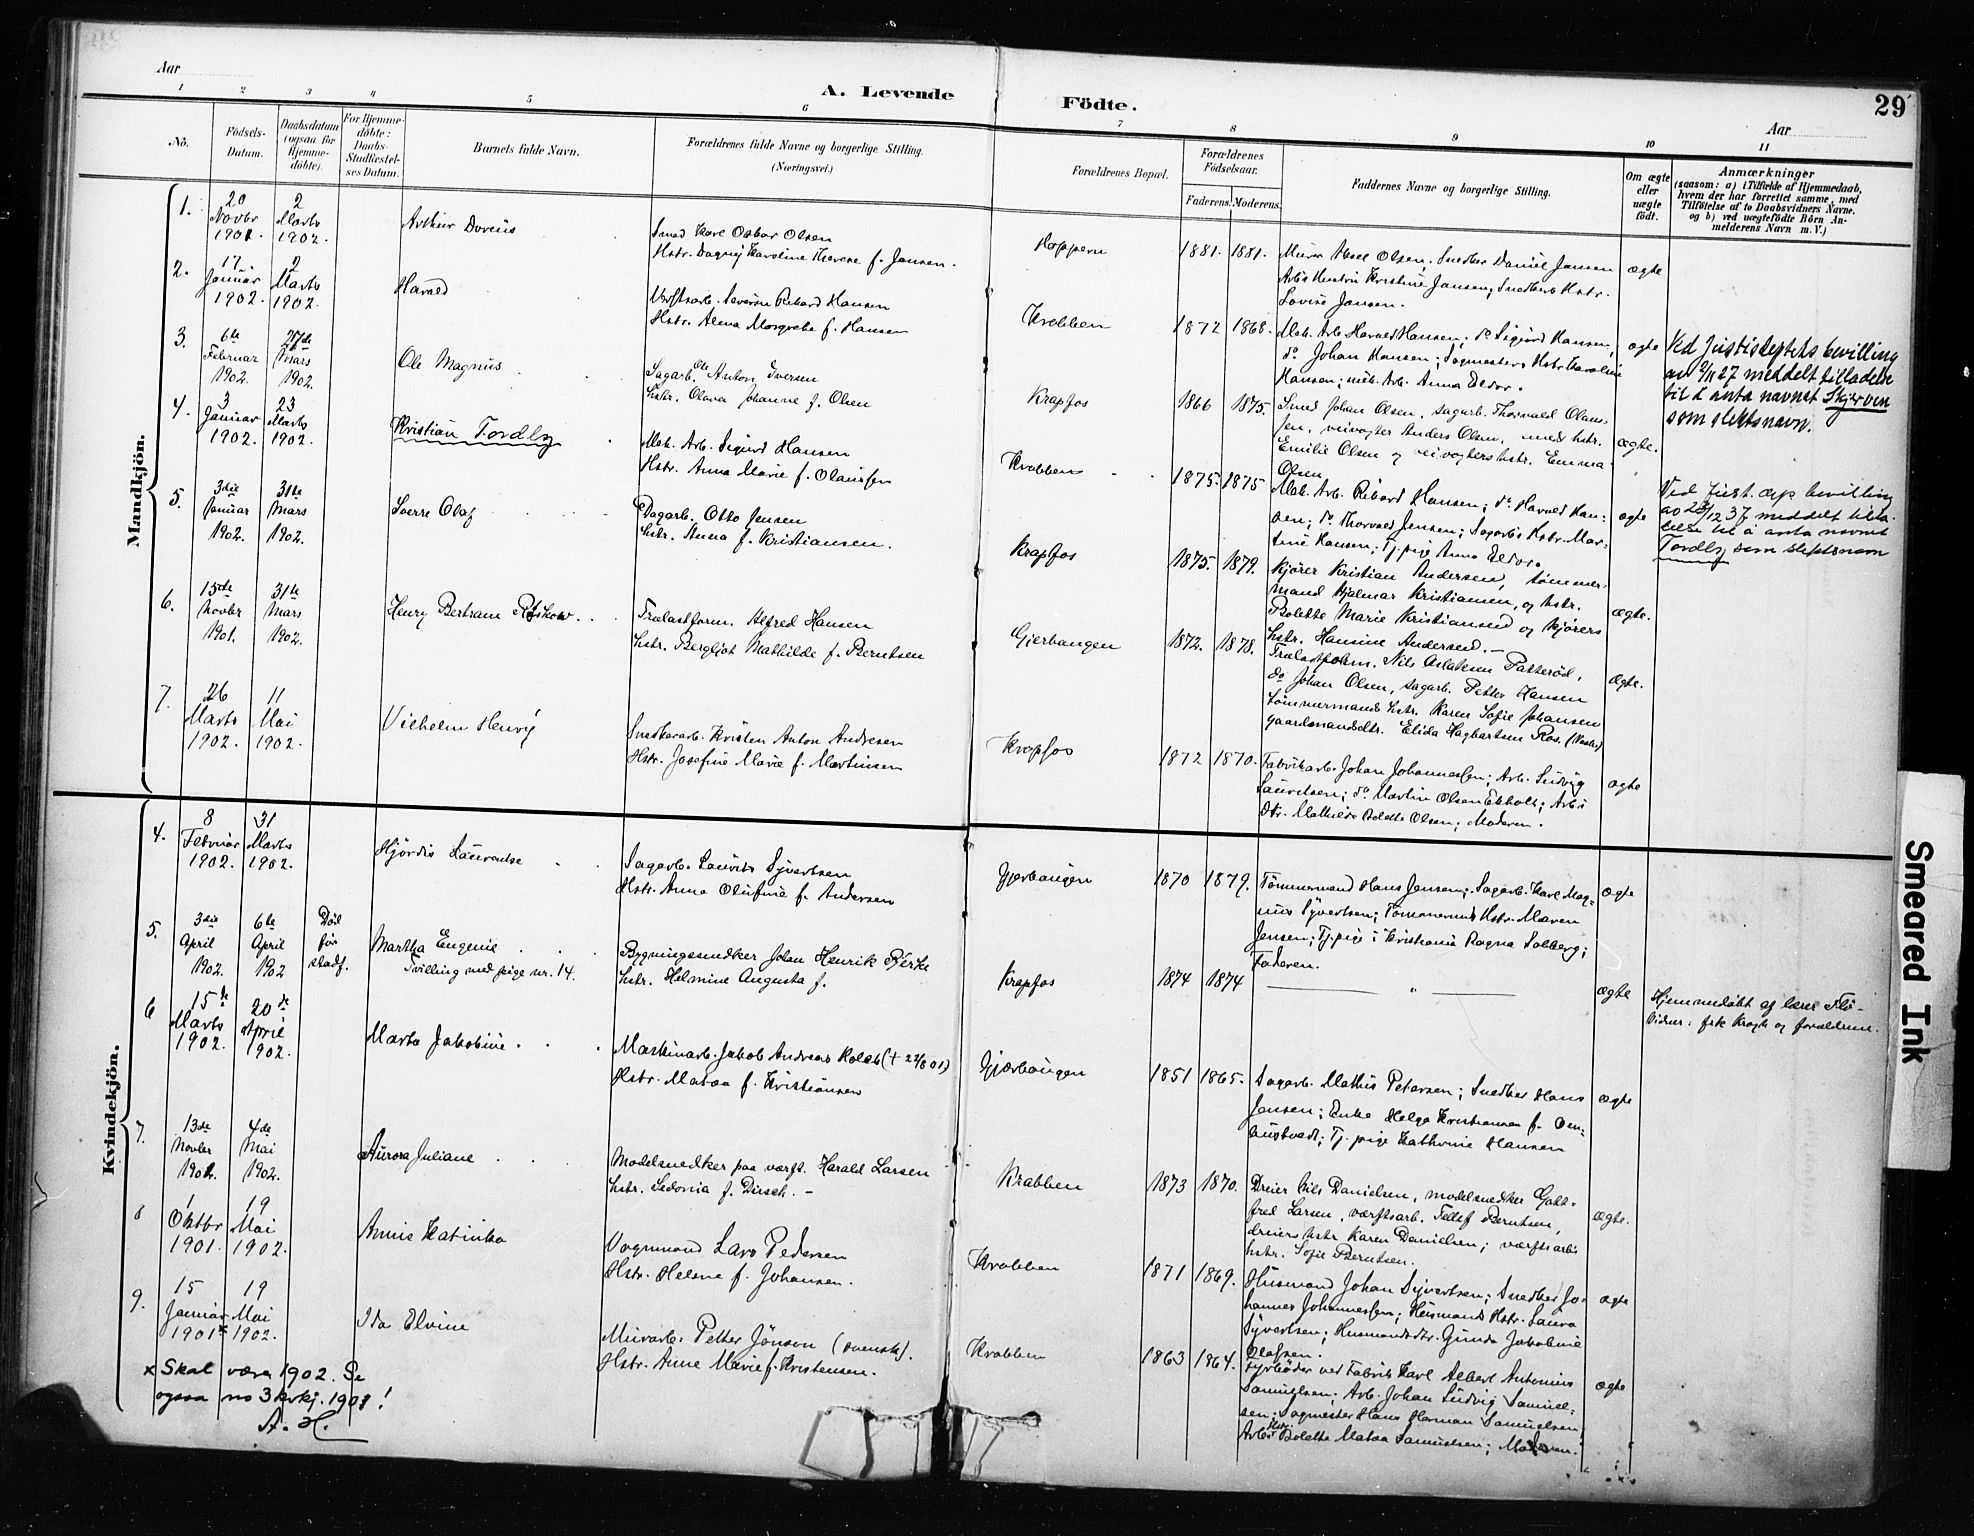 Aar
A. Levende Födte.
29
Aar
1 2 3 4 5 6 7 8 9 10 11
Nö.
Födsels-Datum.
Daabsdatum (ogsaa for Hjemme-döbte).
For Hjemme-döbte: Daabs-Stadfæstel-ses Datum.
Barnets fulde Navn.
Forældrenes fulde Navne og borgerlige Stilling.
(Næringsvei.)
Forældrenes Bopæl.
Forældrenes Födselsaar.
Faderens. Moderens.
Faddernes Navne og borgerlige Stilling.
Om ægte eller uægte födt.
Anmærkninger
(saasom: a) i Tilfælde af Hjemmedaab, hvem der har forrettet samme, med Tilföielse af to Daabsvidners Navne, og b) ved uægtefödte Börn Anmelderens Navn m. V.)
Mandkjön.
1. 20 Novbr 1901. 2 Marts 1902. Arthur Dorius
Smed Karl Oskar Olsen
Hstr. Dagny Karoline Therese f. Jansen.
Koppern 1881. 1881.
Murer Axel Olsen, Snedker Daniel Jansen
Arb's Hustru Kristine Jansen; Snedkers Hstr.
Lovise Jansen.
ægte
2. 17. Januar 1902. 2 Marts 1902. Harald
Værftsarb. Severin Rikard Hansen
Hstr. Alma Margrete f. Hansen
Krabben 1872 1868.
Mek. Arb. Harald Hansen; do Sigurd Hansen,
do Johan Hansen; Sagmesters Hstr. Karoline
Hansen; mek. Arb. Anna
ægte
3. 6te Februar 1902. 27de Mars 1902. Ole Magnus
Sagarb. Ole Anton Iversen
hstr. Olava Johanne f. Olsen
Krapfos 1866 1875.
Smed Johan Olsen, sagarb. Thorvald Olaus-
sen, veivogter Anders Olsen, smeds hstr.
Emilie Olsen og veivogters hstr. Emma
Olsen
ægte.
Ved Justisdeptets bevilling
av 2/11 27 meddelt tilladelse
til å anta navnet Skjerven
som slektsnavn.
4. 3 Januar 1902. 23 Marts 1902. Kristian Tordly
Mek. Arb. Sigurd Hansen
Hstr. Anna Marie f. Olaussen
Krabben 1875. 1875
Mek. Arb. Rikard Hansen; do Harald Han-
sen; do Thorvald Jensen; Sagarb's Hstr. Mar-
tine Hansen; Tj. pige Anna
ægte
Ved just. dep bevilling
av 23/12 37 meddelt tilla-
else til å anta navnet
Tordly som slektsnavn
5. 3die Januar 1902. 31te Mars 1902. Sverre Olaf
Dagarb. Otto Jensen
hstr. Anna f. Kristiansen.
Krapfos 1875. 1879.
Kjører Kristian Andersen, tømmer-
mand Hjalmar Kristiansen, og hstr.
Bolette Marie Kristiansen og kjørers
hstr. Hansine Andersen.
ægte.
6. 15de Novbr 1901. 31te Mars 1902. Henry Bertram
Trælastform. Alfred Hansen
hstr. Bergljot Mathilde f. Berntsen
Gjerbangen 1872. 1878.
Trælastform. Nils Aslaksen Patterød,
do Johan Olsen, sagarb. Petter Hansen
tømmermands hstr. Karen Sofie Johansen
gaardmandsdtr. Elida Hagbartsen Ros.
ægte.
7. 26 Marts 1902. 11 Mai 1902. Vilhelm Henry
Snedkerarb. Kristen Anton Andresen
Hstr. Josefine Marie f. Martinsen
Krapfos 1872 1870.
Fabrikarb. Johan Johannessen; Arb. Ludvig
Lauritsen; do Martin Olsen Ekholt; Arb's
Dtr. Mathilde Bolette Olsen; Moderen.
ægte
Kvindekjön.
4. 8 Februar 1902. 31 Marts 1902. Hjördis Laurentze
Sagarb. Laurits Syvertsen
Hstr. Anna Olufine f. Andersen
Gjerbangen 1870 1879.
Tömmermand Hans Jensen; Sagarb. Karl Mag-
nus Syvertsen; Tömmermds Hstr. Maren
Jensen; Tj. pige i Kristiania Ragna Solberg;
Faderen.
ægte
5. 3die April 1902. 6te April 1902 Död før stadf. Martha Eugenie
Tvilling med pige nr. 14.
Bygningssnedker Johan Henrik Bérke
hstr. Helmine Augusta f.
Krapfos 1874 1874
"
ægte
Hjemmedøbt af lærer
Vidner: frk Krogh og forældrene.
6 15de Marts 1902. 20de April 1902. Marta Jakobine
Maskinarb. Jakob Andreas
Hstr. Matea f. Kristiansen
Gjærbangen 1851 1865.
Sagarb. Mathis Petersen; Snedker Hans
Jensen; Enke Helga Kristiansen f.
Tj. pige Kathrine Hansen
ægte
7. 13de Novbr 1901. 4de Mai 1902. Aurora Juliane
Modelsnedker paa værft. Harald Larsen
hstr. Sedonia f. Dirsch.
Krabben 1873 1870.
Dreier Nils Danielsen, modelsnedker Gott-
fred Larsen, værftsarb. Berntsen,
dreiers hstr Karen Danielsen; værftsarbs
hstr. Sofie Berntsen.
ægte.
8 1 Oktbr 1901. 19 Mai 1902. Annie Katinka
Vognmand Lars Pedersen
Hstr. Helene f. Johansen.
Krabben 1871 1869.
Husmand Johan Syvertsen; Snedker Jo-
hannes Johannessen; Husmands Hstr. Laura
Syvertsen; Husmandsdtr. Gunda Jakobine
Olafsen.
ægte
9. 15 Januar 1901x 19 Mai 1902. Ida Elvine
Murarb. Petter Jönson (svensk).
Hstr. Anne Marie f. Kristensen.
Krabben 1863 1864.
Fyrbøder ved Fabrik Karl Albert Antonius
Samuelsen; Arb. Johan Ludvig Samuel-
sen; Sagmester Hans Herman Samuelsen,
Arb's Hstr. Bolette Matea Samuelsen; Moderen.
ægte
x Skal være 1902. Se
ogsaa no 3 kvkj. 1901!
A. H.
Smeared Ink